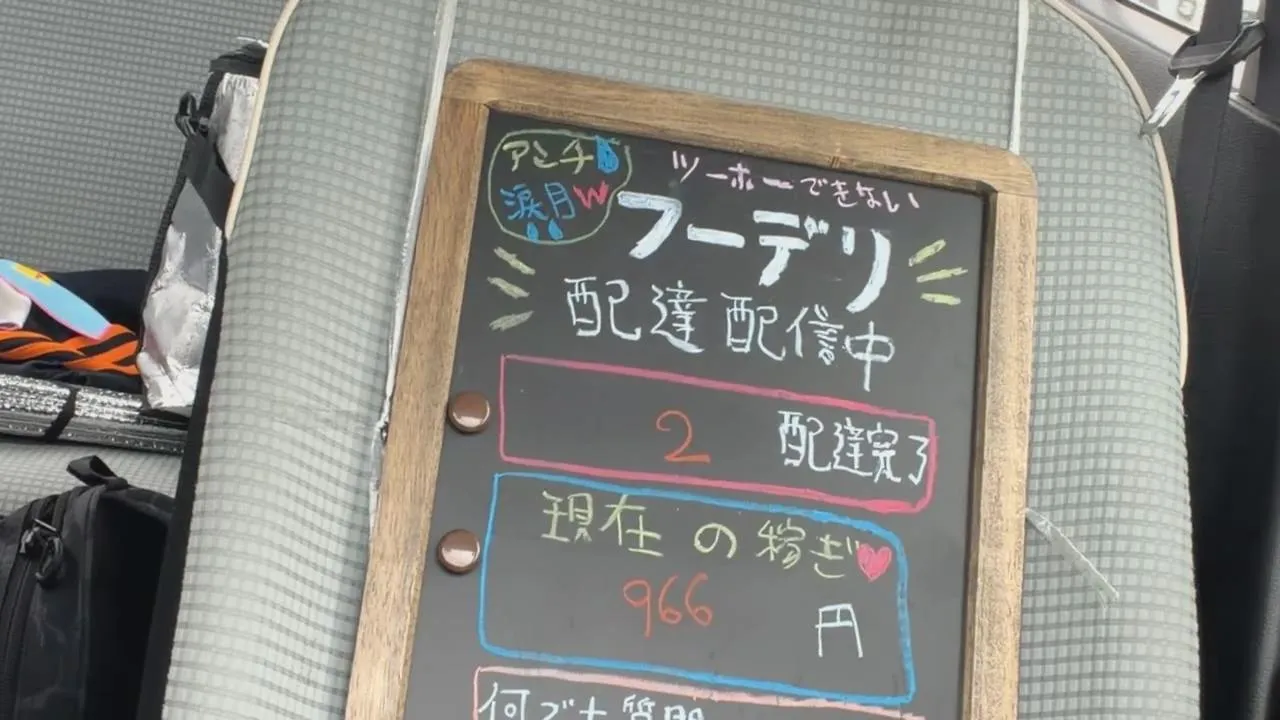 アンチ
涙月W
ツーホーできない
フーデリ
配達配信中
2 配達完了
現在の稼ぎ
966 円
何でも質問